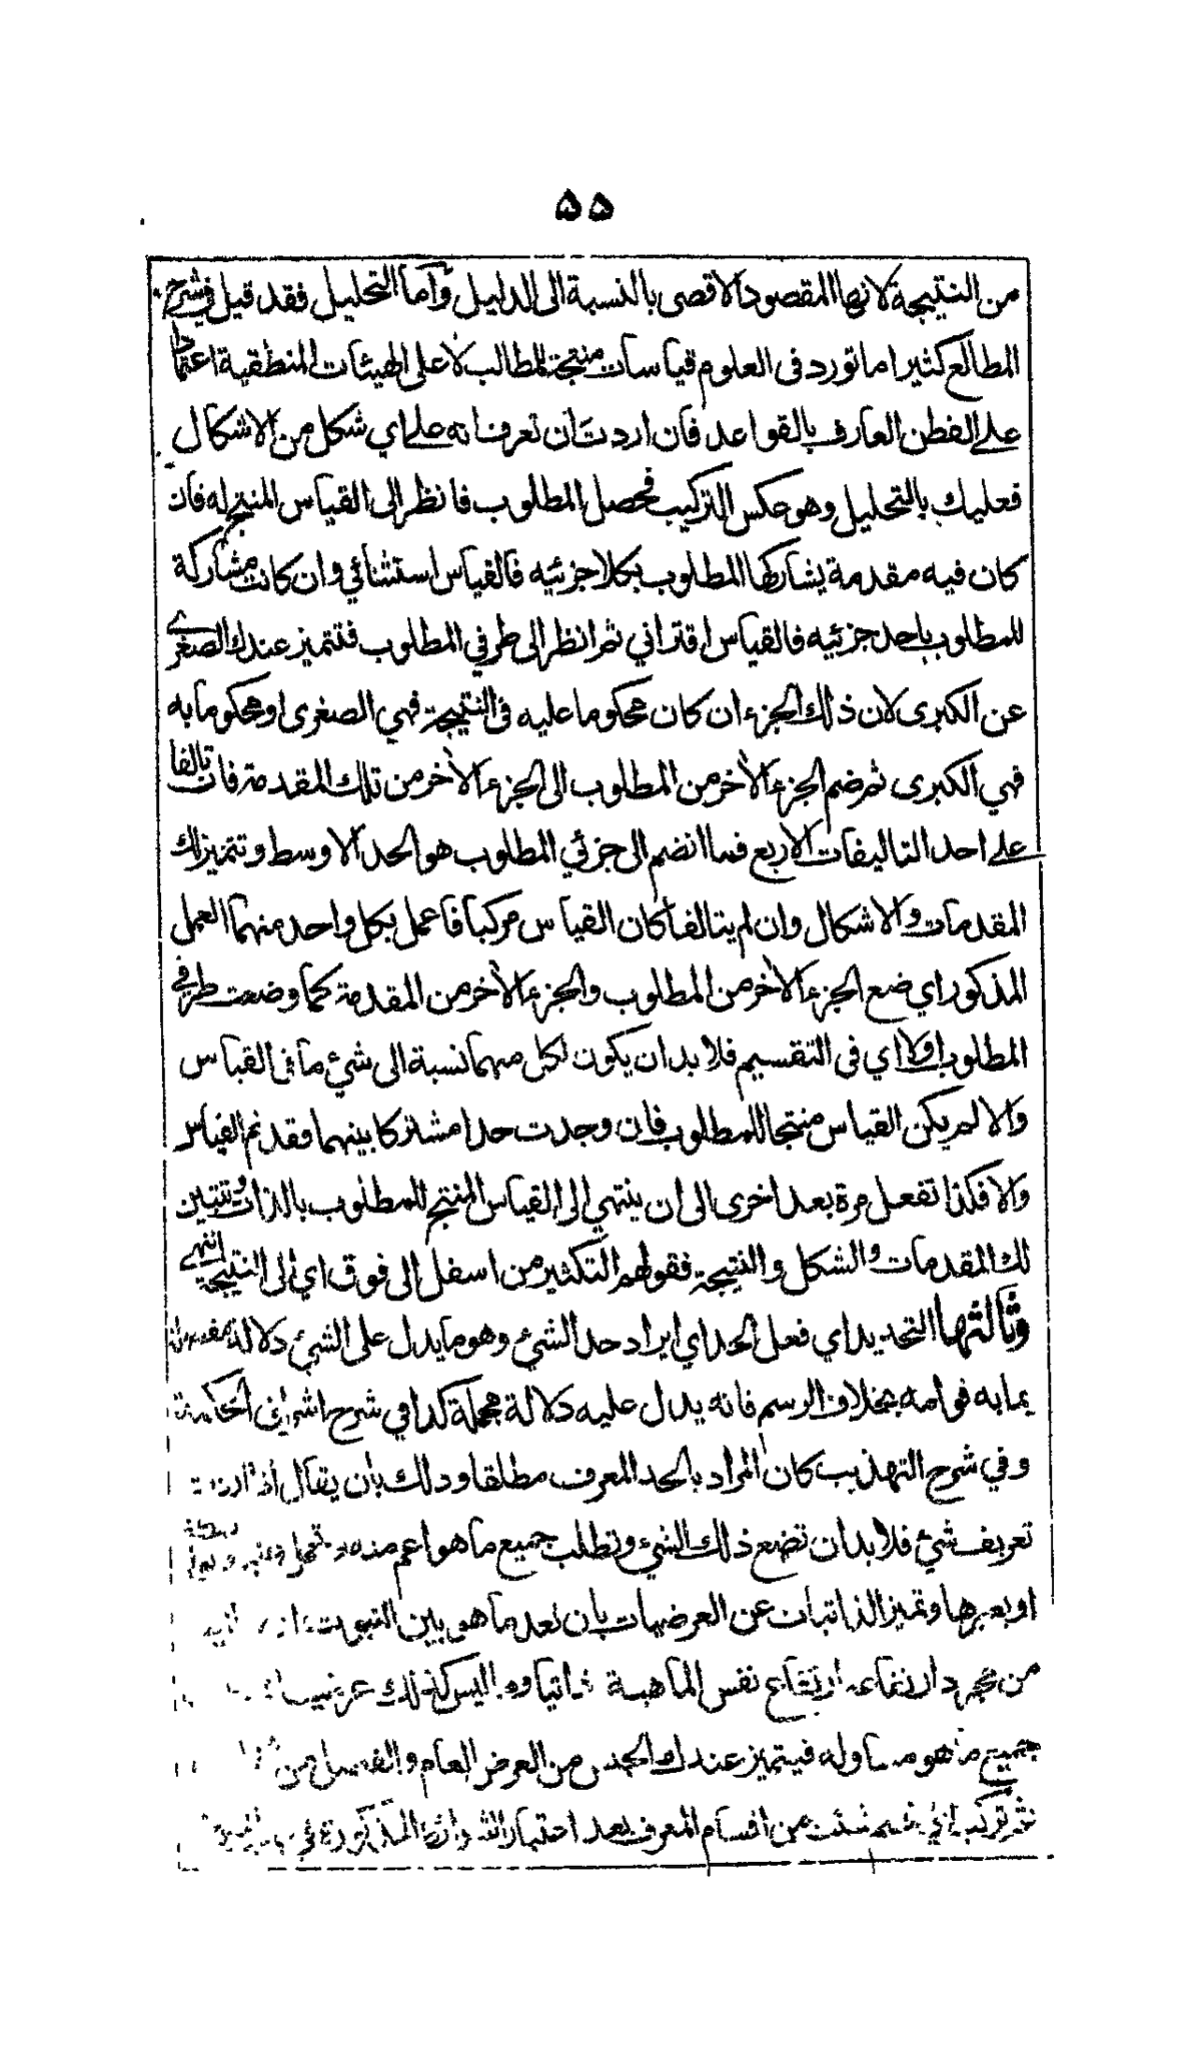 ۵۵
من النتيجة لانها المقصود الاقصى بالنسبة الى الدليل وآما التحليل فقد قيل في شرح
المطالع كثيرا ما تورد فى العلوم قياسات منتجة للمطالب لا على الهيئات المنطقية اعتمادا
على الفطن العارف بالقواعد فان اردت ان تعرف انه على اي شكل من الاشكال
فعليك بالتحليل وهو عكس التركيب فحصل المطلوب فانظر الى القياس المنتج له فان
كان فيه مقدمة يشاركها المطلوب بكلا جزئيه فالقياس استثنائي وان كانت مشاركة
للمطلوب باحد جزئيه فالقياس اقتراني ثم انظر الى طرفي المطلوب فتتميز عندك الصغرى
عن الكبرى لان ذلك الجزء ان كان محكوما عليه فى النتيجة فهي الصغرى او محكوما به
فهي الكبرى ثم ضم الجزء الآخر من المطلوب الى الجزء الآخر من تلك المقدمة فان تالفا
على احد التاليفات الاربع فما انضم الى جزئي المطلوب هو الحد الاوسط وتتميز لك
المقدمات والاشكال وان لم يتالفا كان القياس مركبا فاعمل بكل واحد منهما العمل
المذكور اي ضع الجزء الآخر من المطلوب والجزء الآخر من المقدمة كما وضعت طرفي
المطلوب اولا اي فى التقسيم فلا بد ان يكون لكل منهما نسبة الى شئ ما فى القياس
والا لم يكن القياس منتجا للمطلوب فان وجدت حدا مشتركا بينهما فقد تم القياس
والا فكذا تفعل مرة بعد اخرى الى ان ينتهي الى القياس المنتج للمطلوب بالذات وتتبين
لك المقدمات والشكل والنتيجة فقولهم التكثير من اسفل الى فوق اي الى النتيجة انتهى
وثالثها التحديد اي فعل الحد اي ايراد حد الشئ وهو ما يدل على الشئ دلالة مفصلة
بما به قوامه بخلاف الرسم فانه يدل عليه دلالة مجملة كذا في شرح اشراق الحكمة
وفي شرح التهذيب كان المراد بالحد المعرف مطلقا وذلك بان يقال اذا اردت
تعريف شئ فلا بد ان تضع ذلك الشئ وتطلب جميع ما هو اعم منه وتحمل عليه
او بغيرها وتميز الذاتيات عن العرضيات بان تعد ما هو بين الثبوت
من مجرد ارتفاعه ارتفاع نفس الماهية ذاتيا وما ليس كذلك عرضيا
جميع ما هو مساو له فيتميز عندك الجنس من العرض العام والفصل من
ثم تركب اي قسم شئت من اقسام المعرف بعد اعتبار الشرائط المذكورة في